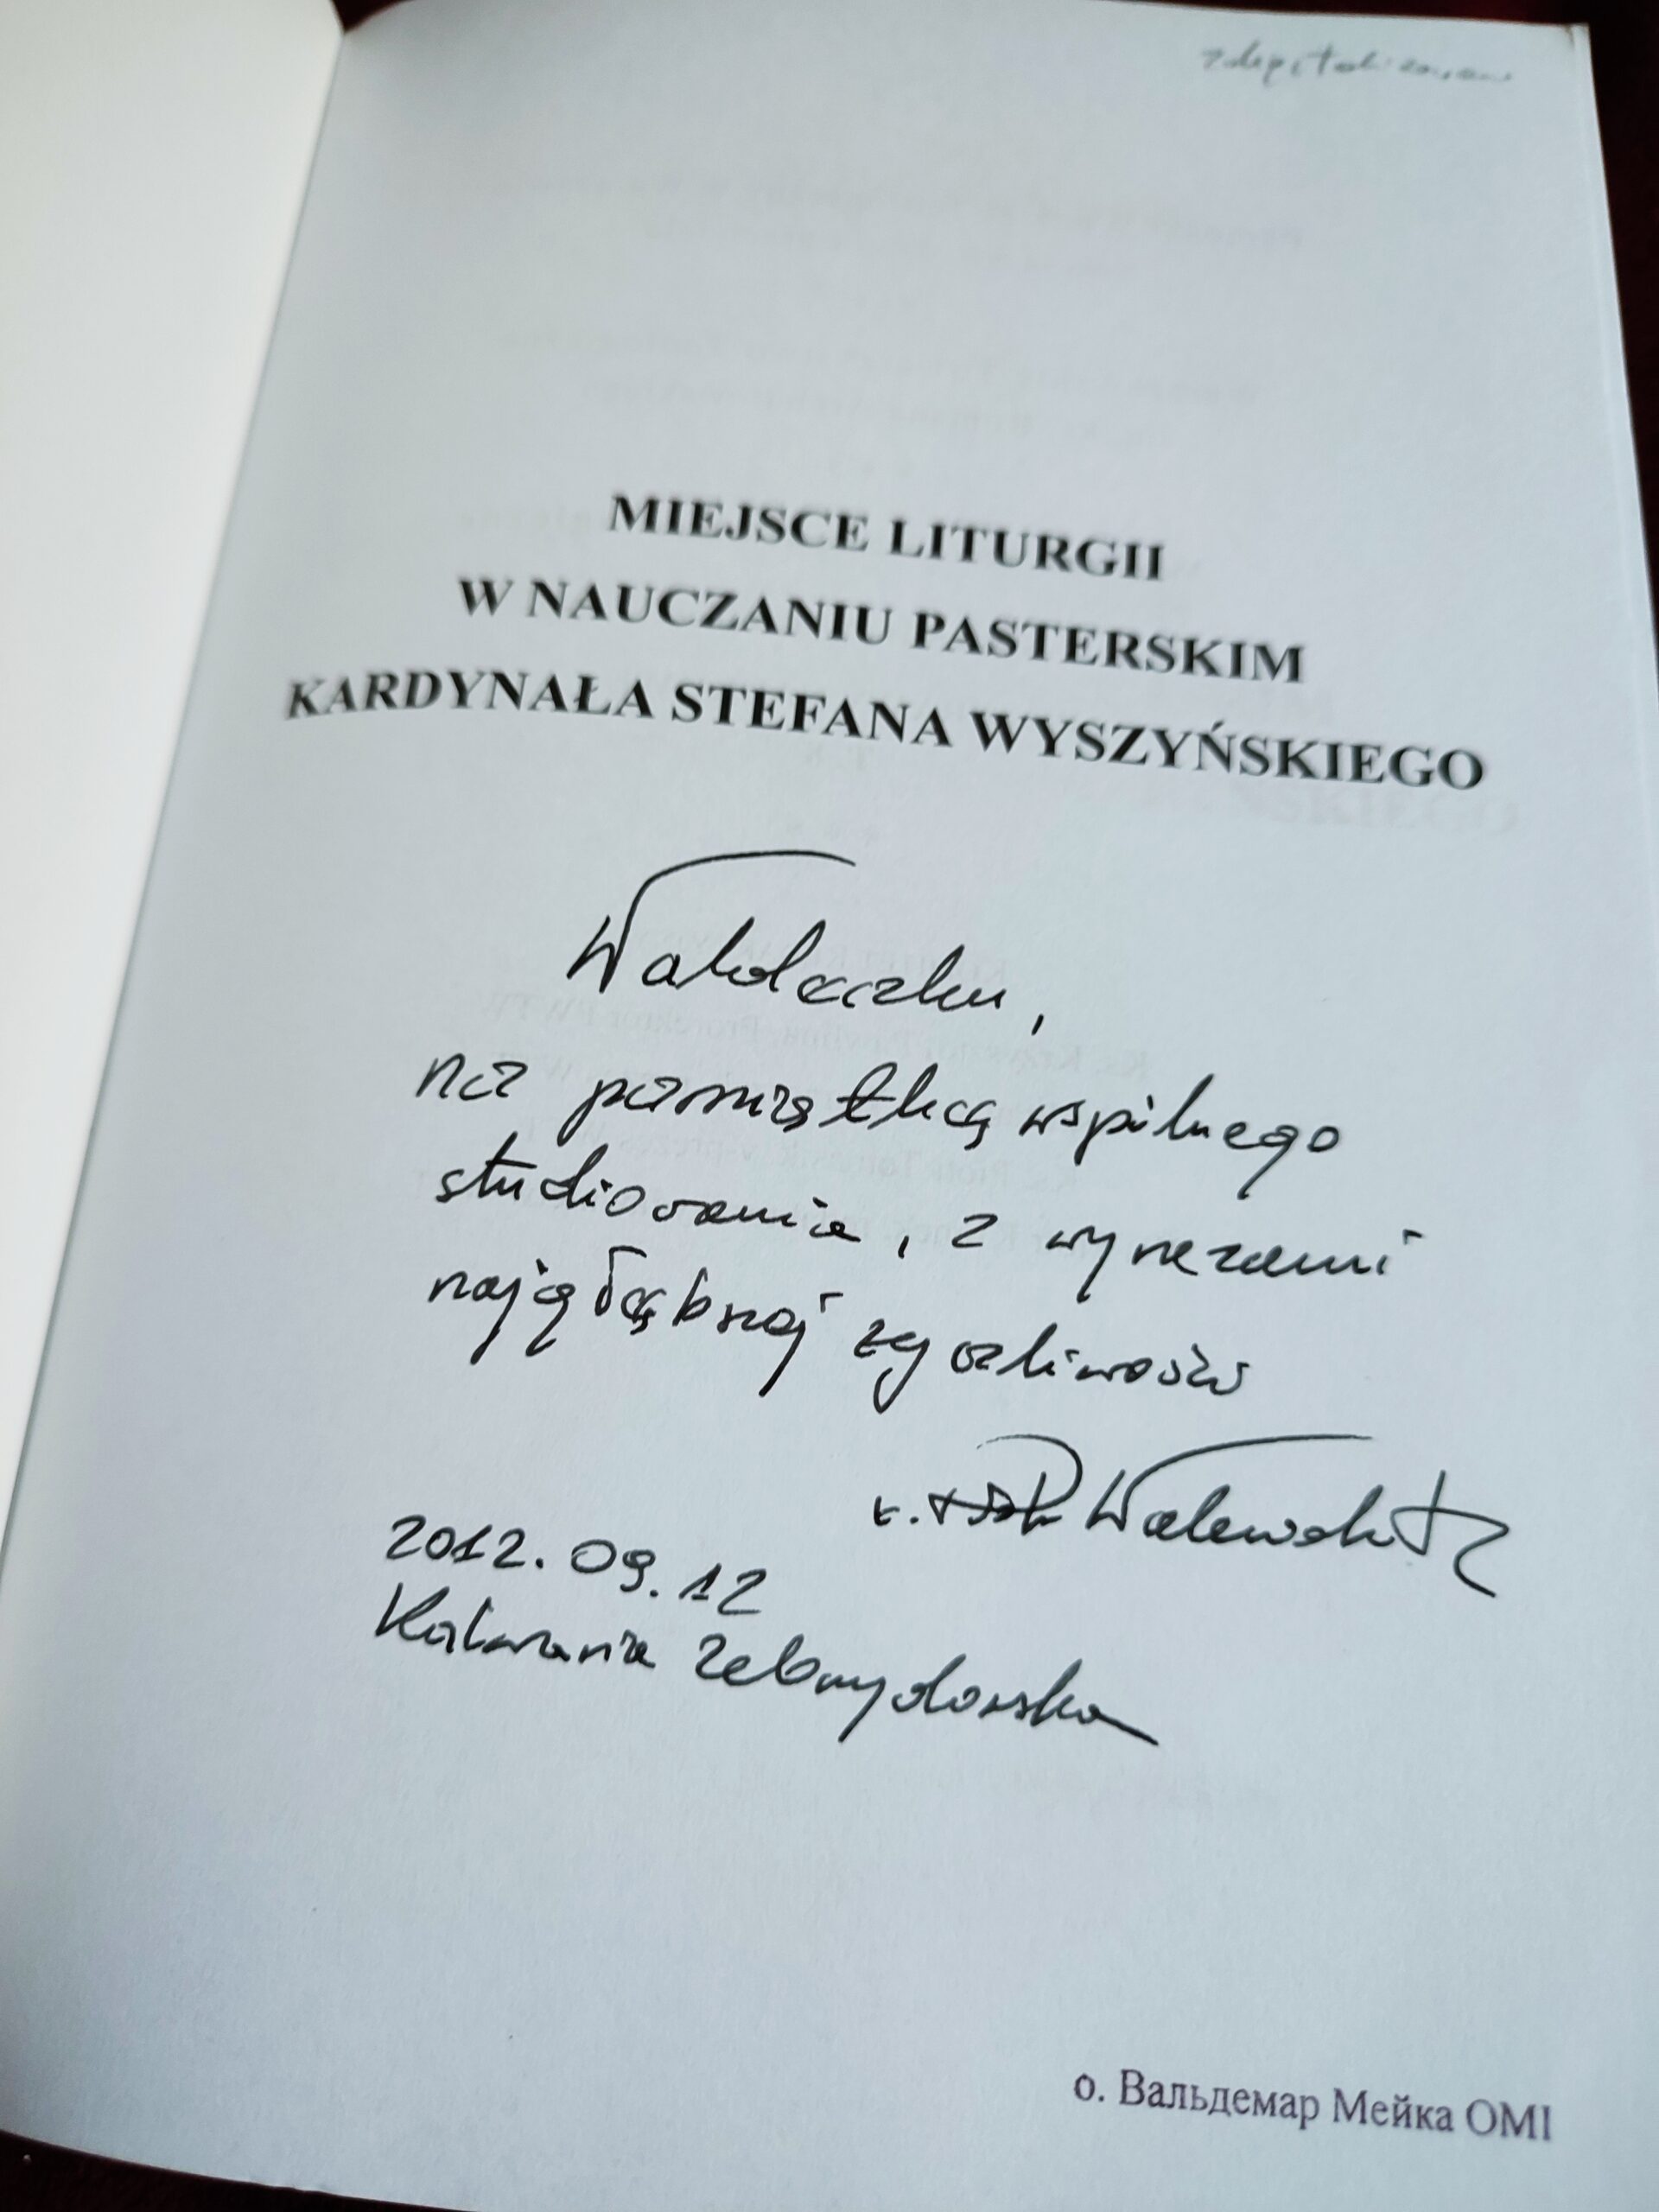 MIEJSCE LITURGII
W NAUCZANIU PASTERSKIM
KARDYNAŁA STEFANA WYSZYŃSKIEGO
na pamiątkę wspólnego
studiowania, z wyrazami
najgłębszej życzliwości
Walewski
2012.09.12
Kalwaria Zebrzydowska
о. Вальдемар Мейка ОМІ